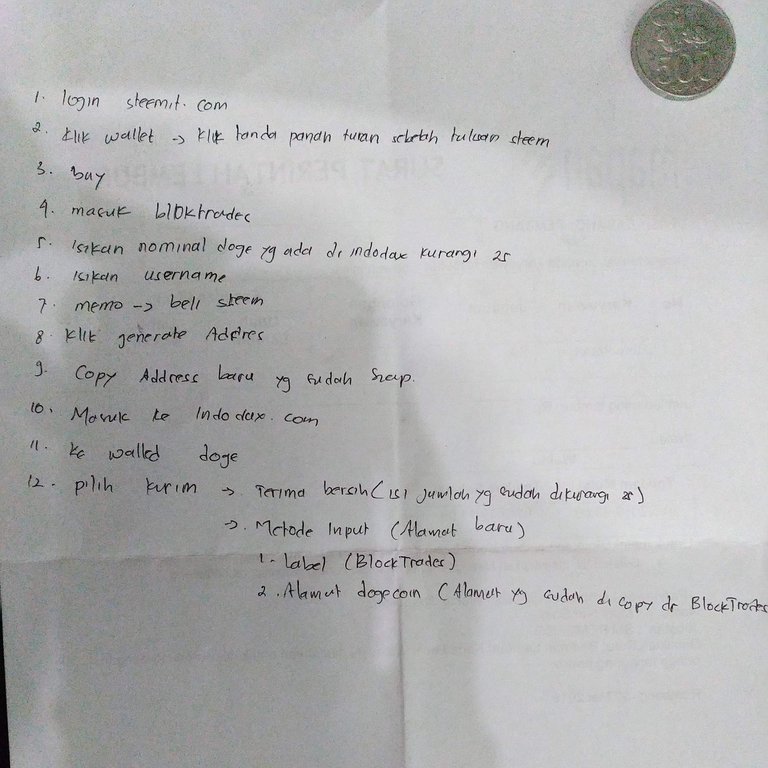 500
1. login steemit.com
2. klik wallet -> klik tanda panah turun sebelah tulisan steem
3. buy
4. masuk bloktrades
5. Isikan nominal doge yg ada di indodax kurangi 25
6. Isikan username
7. memo -> beli steem
8. klik generate Addres
9. Copy Address baru yg sudah siap.
10. Masuk ke Indodax.com
11. ke walled doge
12. pilih kirim -> Terima bersih (isi jumlah yg sudah dikurangi 25)
-> Metode Input (Alamat baru)
1. Label (BlockTrades)
2. Alamat dogecoin (Alamat yg sudah di copy dr BlockTrades